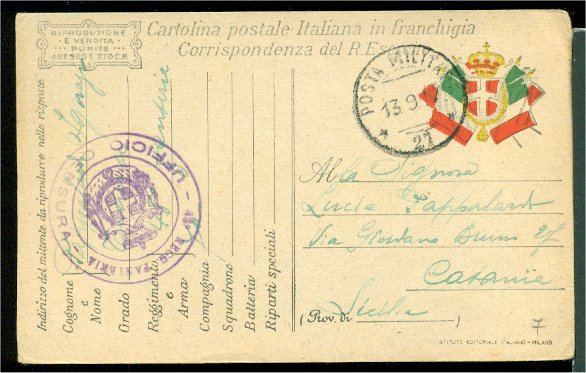 RIPRODUZIONE
E VENDITA
PUNITE
ART. 596 E 270 C.P.
Cartolina postale Italiana in franchigia
Corrispondenza del R. Es
POSTA MILITA
13 9
* 27 *
Indirizzo del mittente da riprodurre nelle risposte
Cognome
e
Nome
Grado
Reggimento
e
Arma
Compagnia
Squadrone
Batteria
Riparti speciali
UFFICIO
CENSURA
REGG. FANTERIA
Alla Signora
Lucia Pappalardo
Via Giordano Bruno
Catania
(Prov. di Sicilia )
7
ISTITUTO EDITORIALE ITALIANO - MILANO